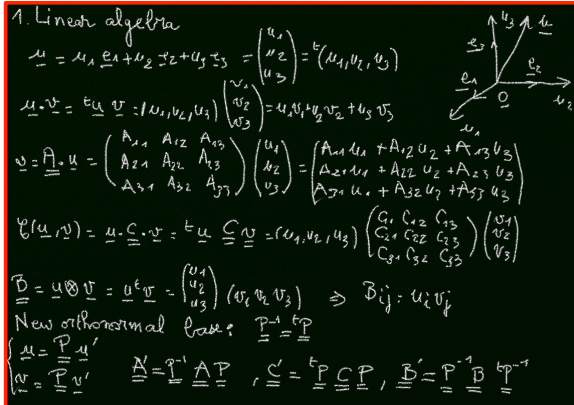 1. Linear algebra
u = u1 e1 + u2 e2 + u3 e3 = (u1 u2 u3) = ᵗ(u1, u2, u3)
u3 u
e3
e1 e2
O u2
u1
u · v = ᵗu v = (u1, u2, u3) (v1 v2 v3) = u1v1 + u2v2 + u3v3
v = A · u = (A11 A12 A13 A21 A22 A23 A31 A32 A33) (u1 u2 u3) = (A11u1 + A12u2 + A13u3 A21u1 + A22u2 + A23u3 A31u1 + A32u2 + A33u3)
C(u, v) = u · C · v = ᵗu C v = (u1, u2, u3) (C11 C12 C13 C21 C22 C23 C31 C32 C33) (v1 v2 v3)
B = u ⊗ v = u ᵗv = (u1 u2 u3) (v1 v2 v3) ⇒ Bij = ui vj
New orthonormal base: P⁻¹ = ᵗP
u = P u'
v = P v'
A' = P⁻¹ A P , C' = ᵗP C P , B' = P⁻¹ B ᵗP⁻¹